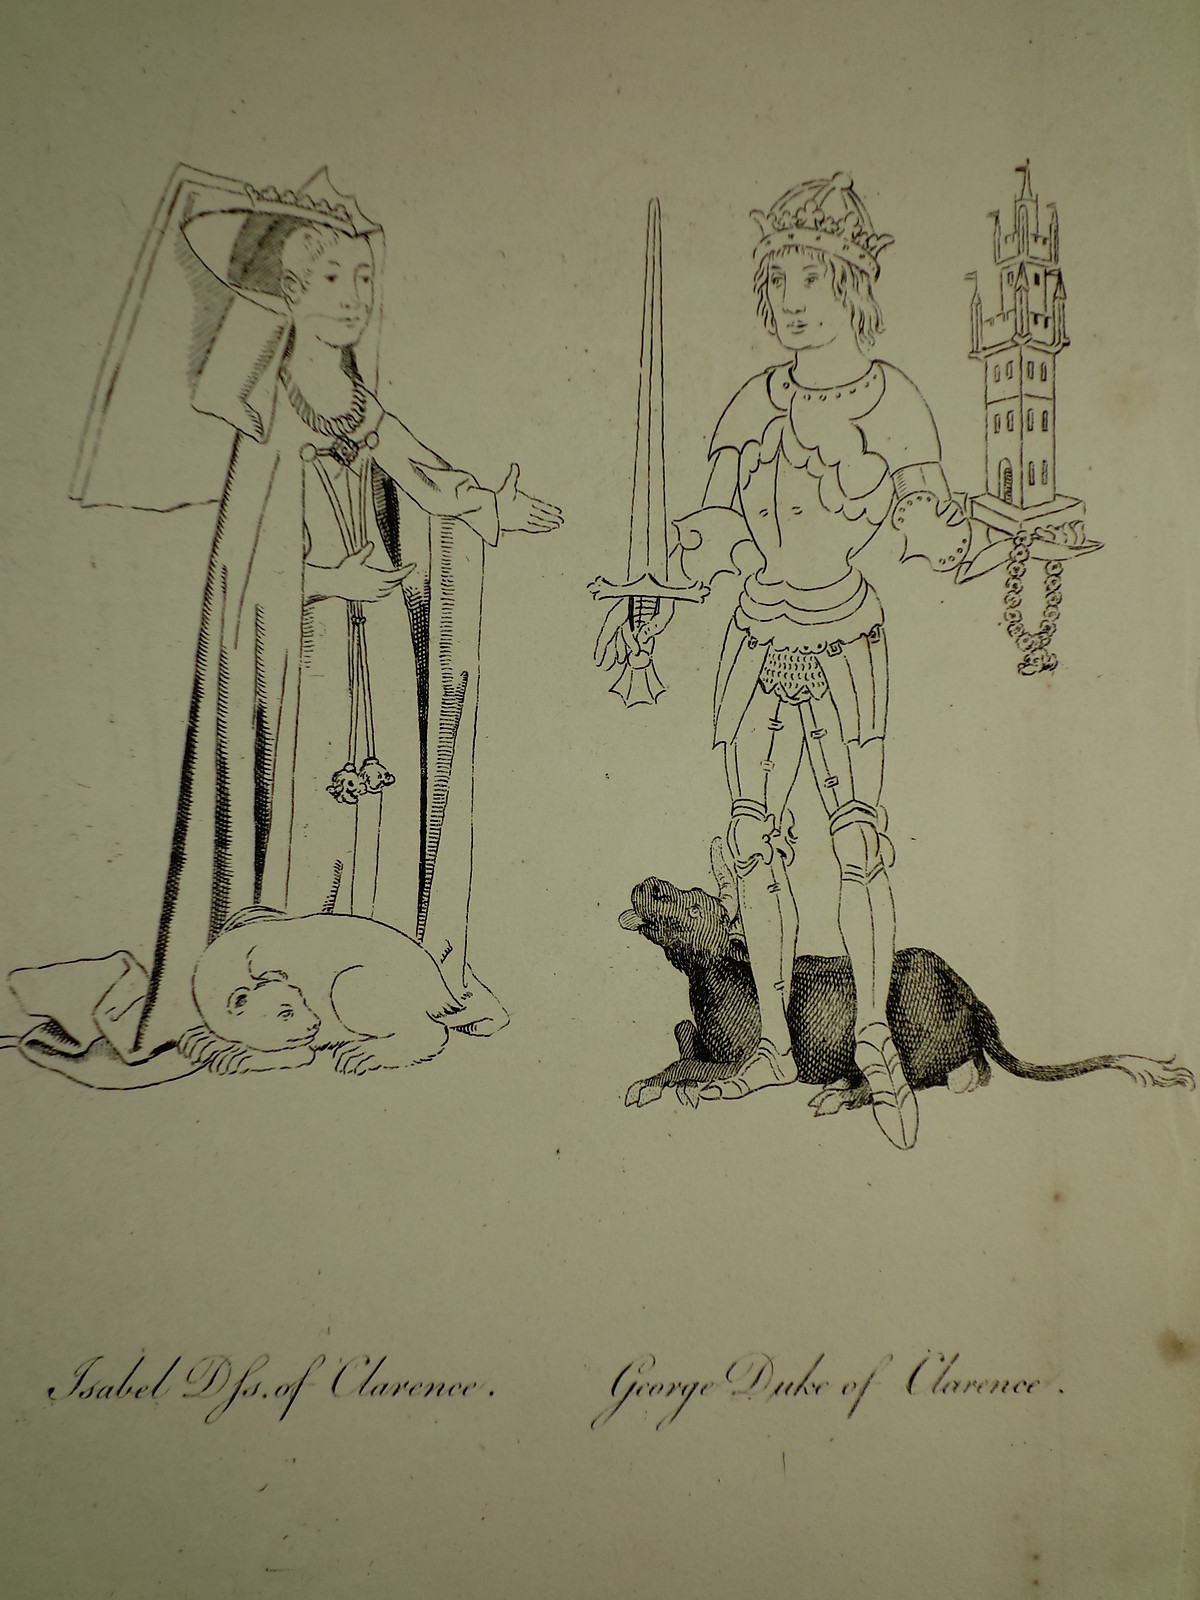 Isabel Dſs. of Clarence.
George Duke of Clarence.